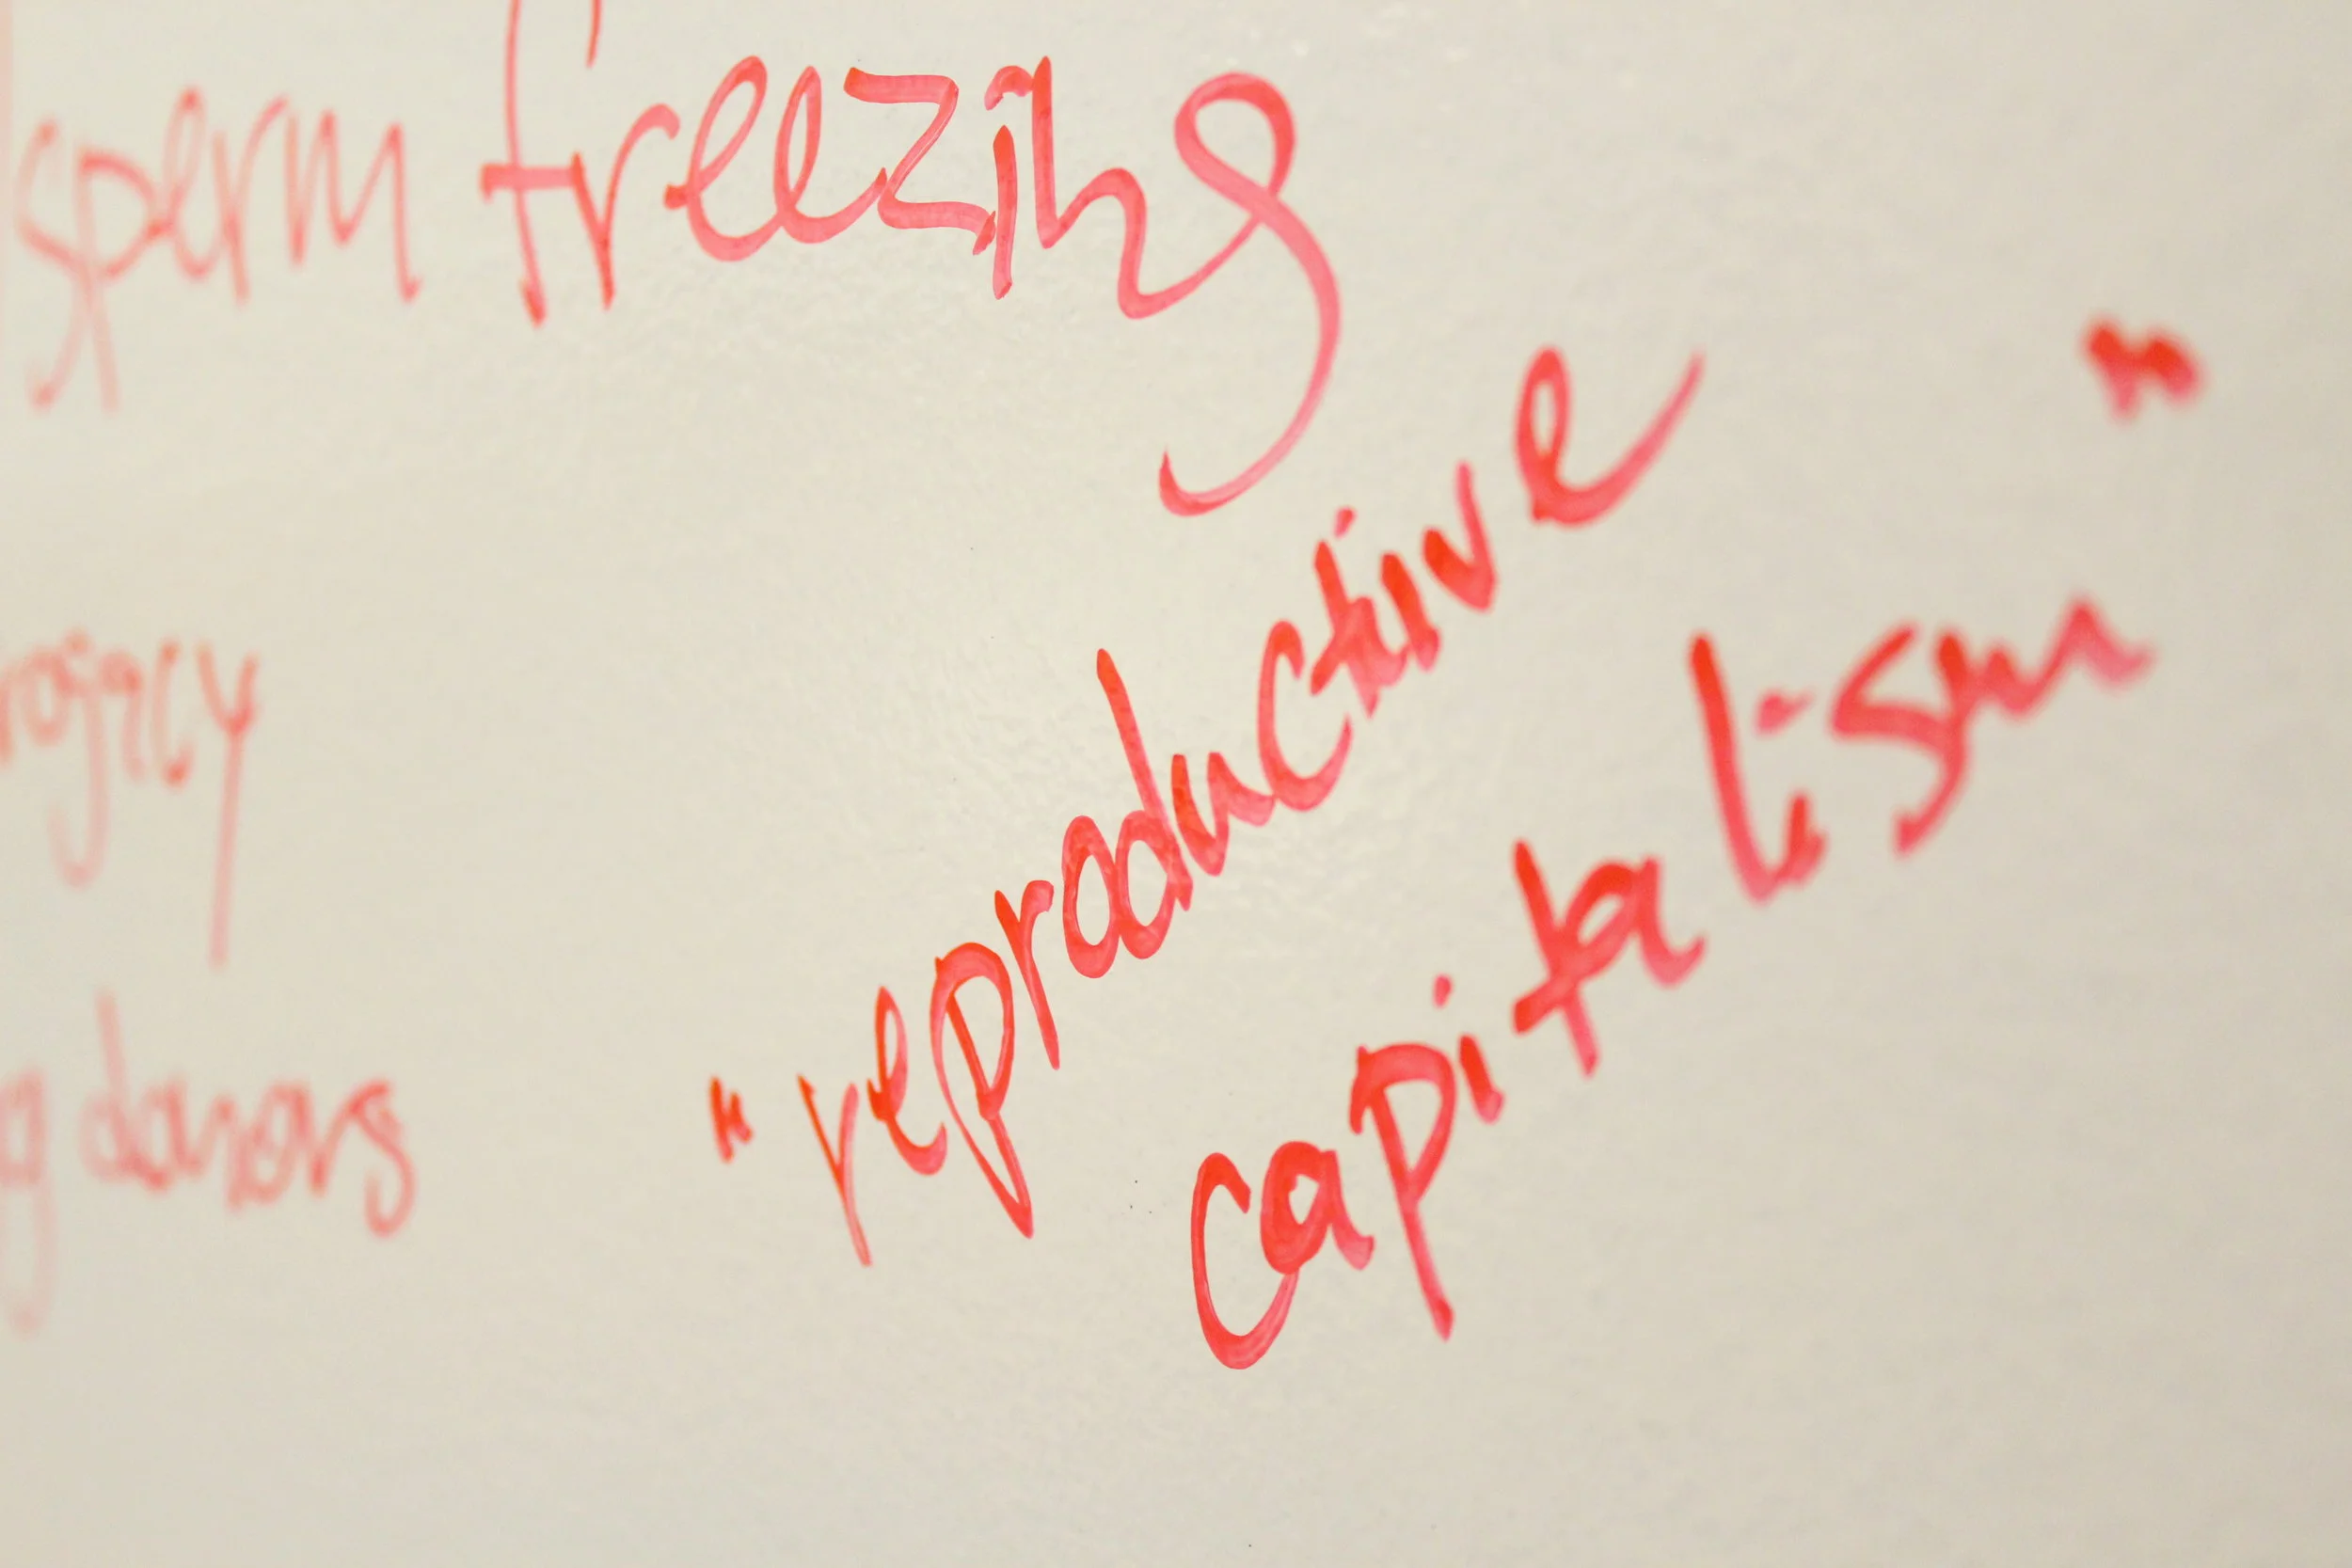 sperm freezing
rogacy
g donors
"reproductive
capitalism"